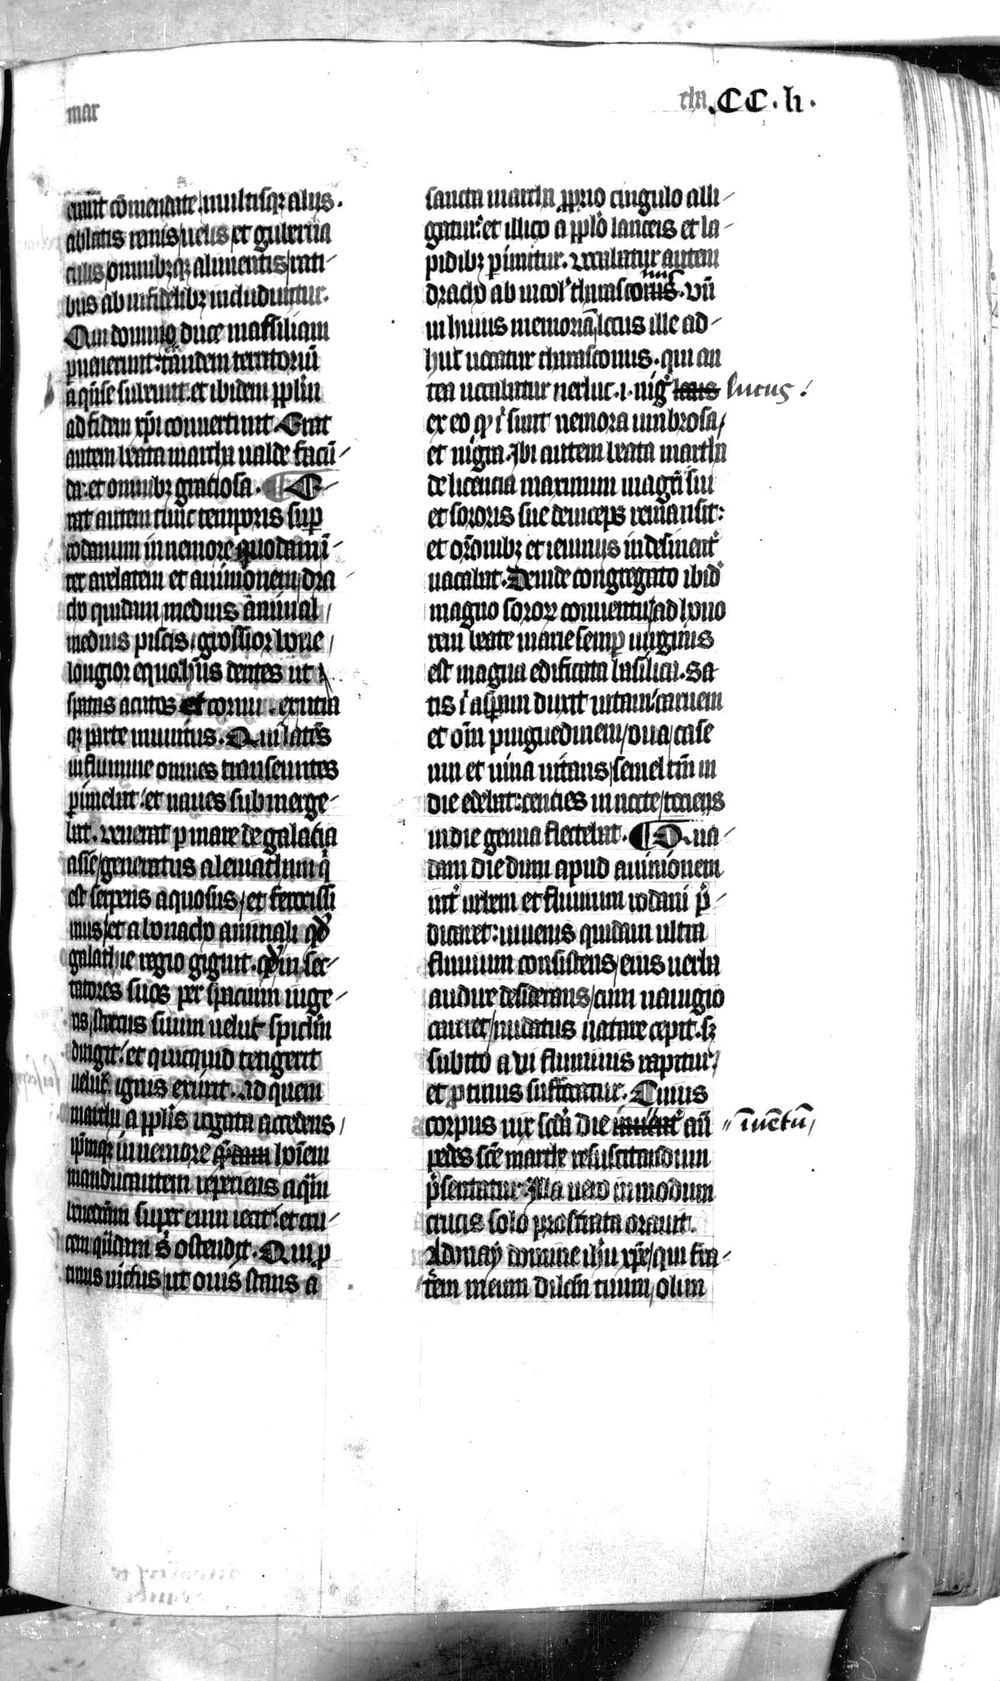 mar
tha .CC.li.
erunt cōmendate multisqȝ aliis.
ablatis remis uelis et guberna
culis omnibȝqȝ alimentis rati-
bus ab infidelibȝ includuntur.
Qui domino duce massiliam
puenerunt: tandem territoriū
aquēse subeunt et ibidem pplm
ad fidem xpi conuertunt. Erat
autem beata martha ualde facū-
da et omnibȝ graciosa. ¶ E-
rat autem tunc temporis sup
rodanum in nemore quodam ī-
ter arelatem et auinionem dra
cho quidam medius animal
medius piscis grossior boue
longior equo hn̄s dentes ut
spatas acutos et cornu. ex utra
qȝ parte munitus. Qui latēs
in flumine omnes transeuntes
pimebat et naues submerge-
bat. venerat p mare de galacia
asie generatus a leuiathum q̄
est serpens aquosus et ferocissi
mus et a bonacho animali qd
galathie regio gignit. qd in sec-
tatores suos per spacium iuge-
ris stercus suum uelut spiclm
dirigit et quicquid tetigerit
uelut ignis exurit. Ad quem
martha a pplis rogata accedens
ipmqȝ in nemore hoīem
manducantem reperiens aqam
benedictam super eum iecit et cru-
cem quādam s̄ ostendit. Qui p
tinus victus ut ouis stans a
sancta martha pprio cingulo alli-
gatur et illico a pplo lanceis et la-
pidibȝ pimitur. vocabatur autem
dracho ab incol' tharasconus. vn̄
in huius memoriā locus ille ad-
huc uocatur tharasconus. qui an
tea uocabatur nerluc .i. nig lucus!
ex eo qp ī sunt nemora umbrosa
et nigra. Ibi autem beata martha
de licencia maximini magrī sui
et sororis sue deinceps remansit:
et orōnibȝ et ieiuniis indesinent
uacabat. Deinde congregato ibid
magno soror conuentu ad hono
rem beate marie semp uirginis
est magna edificata basilica. Sa
tis ī aspam duxit uitam: carnem
et oīm pinguedinem oua case
um et uina uitans semel tm̄ in
die edebat: centies in nocte tociens
in die genua flectebat. ¶ Qua-
dam die dum apud auinionem
int urbem et fluuium rodani p̄-
dicaret: iuuenis quidam ultra
fluuium consistens eius uerba
audire desiderans cum nauigio
careret nudatus natare cepit. sȝ
subito a vi fluminis rapitur
et ptinus suffocatur. Cuius
corpus uix scdā die an̄ īuētū
pedes scē marthe resuscitandum
p̄sentatur. Illa uero in modum
crucis solo prostrata orauit.
Adonay domine ihu xpe qui fra-
trem meum dilcm tuum olim